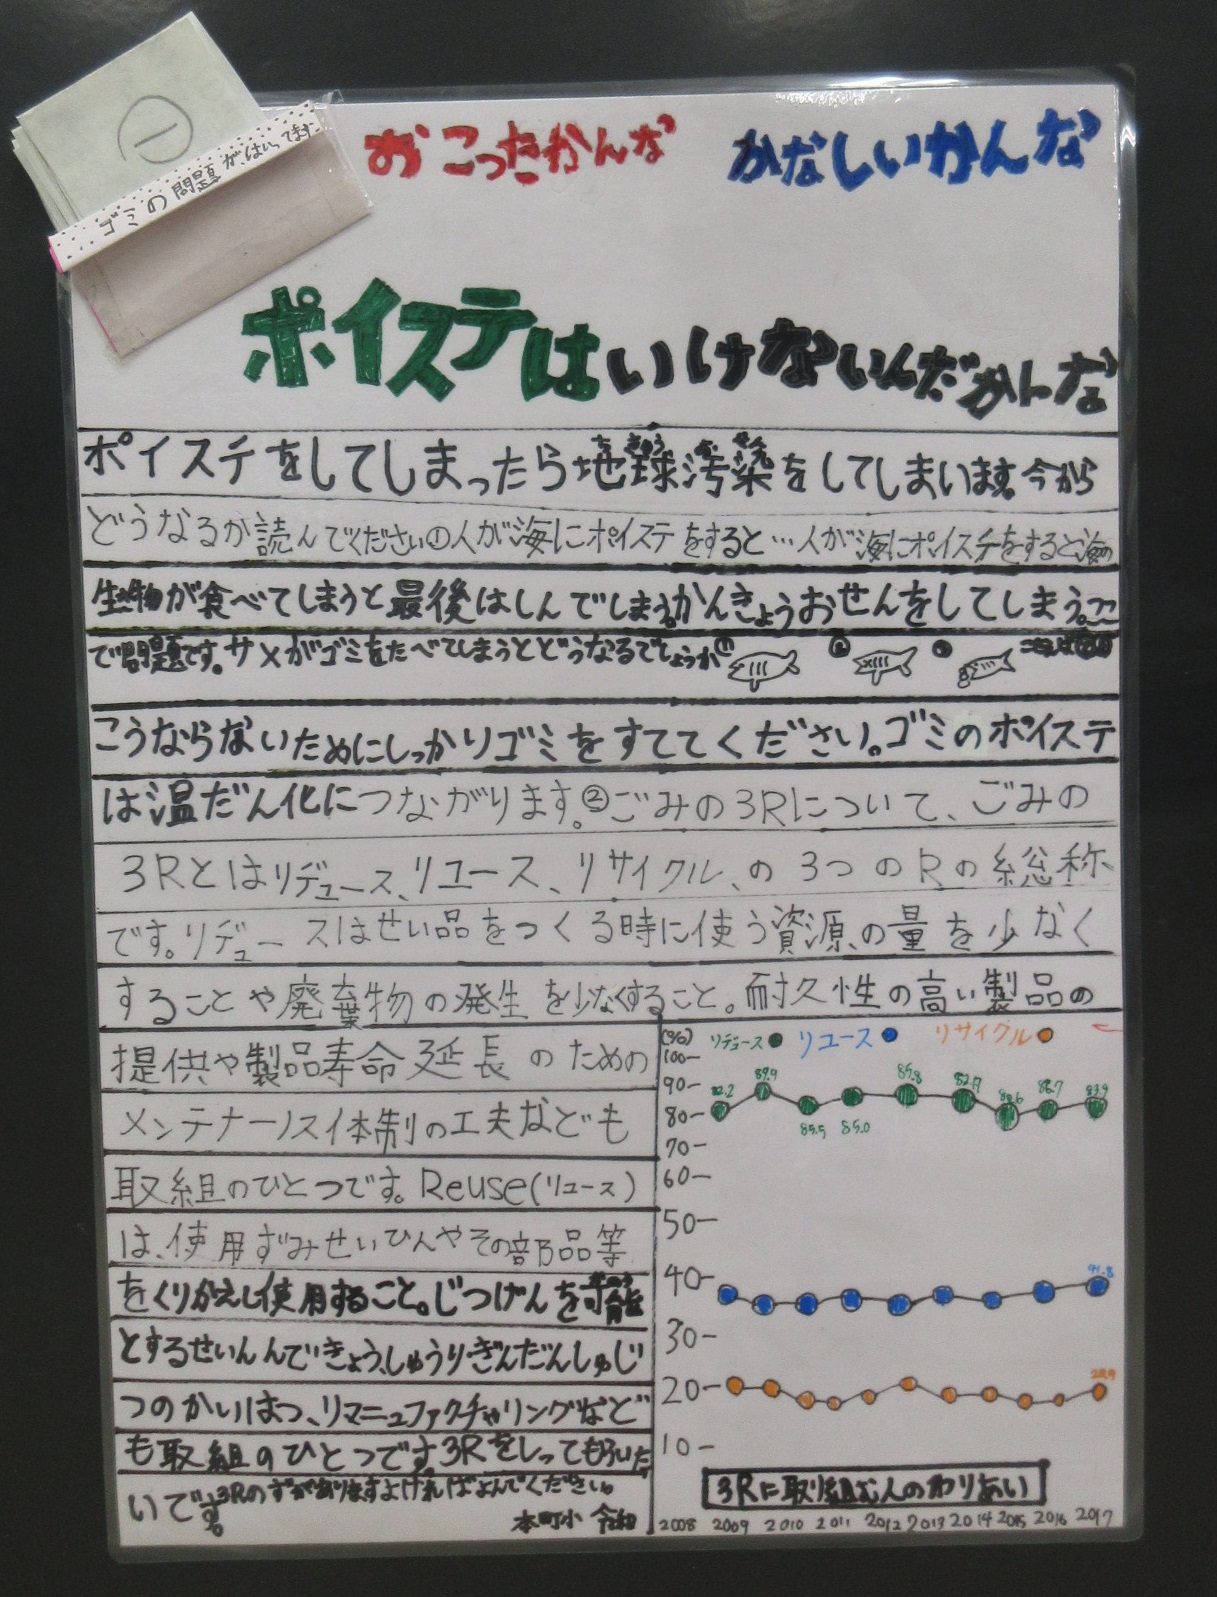 一
ゴミの問題が、はいってます
おこったかんな かなしいかんな
ポイステはいけないんだかんな
ポイステをしてしまったら地球汚染をしてしまいます。今から
どうなるか読んでください①人が海にポイステをすると…人が海にポイステをすると海の
生物が食べてしまうと最後はしんでしまう。かんきょうおせんをしてしまう。ここ
で問題です。サメがゴミをたべてしまうとどうなるでしょうか① ② ③
こうならないためにしっかりゴミをすててください。ゴミのポイステ
は温だん化につながります。②ごみの3Rについて、ごみの
3Rとはリデュース、リユース、リサイクル、の3つのRの総称
です。リデュースはせい品をつくる時に使う資源の量を少なく
することや廃棄物の発生を少なくすること。耐久性の高い製品の
提供や製品寿命延長のための
メンテナーノス体制の工夫なども
取組のひとつです。Reuse(リユース)
は、使用ずみせいひんやその部品等
をくりかえし使用すること。じつげんを可能
とするせいんんできょう、しゅうりぎんだんしゅじ
つのかいはつ、リマニュファクチャリングなど
も取組のひとつです。3Rをしってもらいた
いです。3Rのずがありますよければよんでください。
本町小 令和
(%) リデュース リユース リサイクル
100
90
80
70
60
50
40
30
20
10
82.2 89.9 85.5 85.0 85.8 83.9
41.8
3Rに取り組む人のわりあい
2008 2009 2010 2011 2012 2013 2014 2015 2016 2017